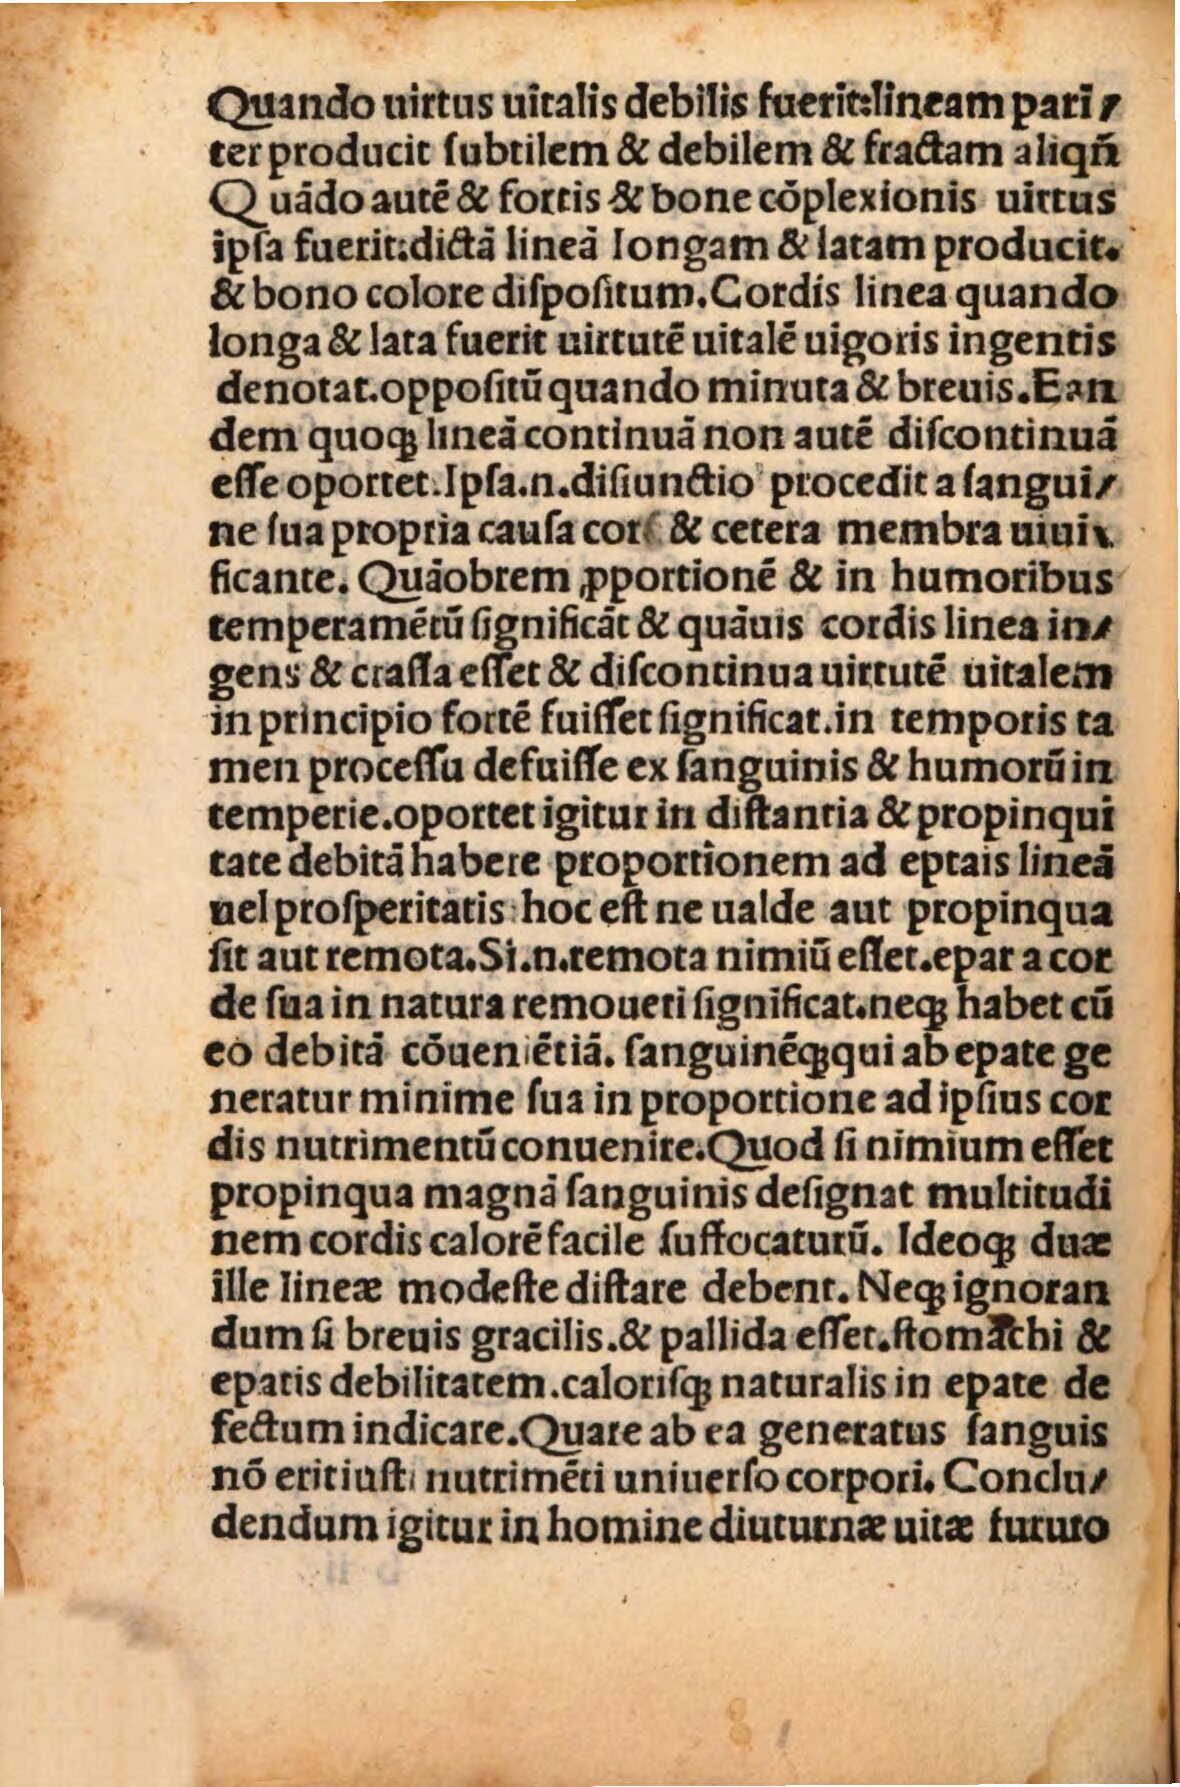 Quando uirtus uitalis debilis fuerit:lineam pari/
ter producit ſubtilem & debilem & fractam aliqñ
Quãdo autẽ & fortis & bone cõplexionis uirtus
ipſa fuerit:dictã lineã longam & latam producit.
& bono colore diſpoſitum.Cordis linea quando
longa & lata fuerit uirtutẽ uitalẽ uigoris ingentis
denotat.oppoſitũ quando minuta & breuis.Ean
dem quoqꝫ lineã continuã non autẽ diſcontinuã
eſſe oportet.Ipſa.n.diſiunctio procedit a ſangui/
ne ſua propria cauſa cor & cetera membra uiui
ficante. Quãobrem ꝓportionẽ & in humoribus
temperamẽtũ ſignificãt & quãuis cordis linea in/
gens & craſſa eſſet & diſcontinua uirtutẽ uitalem
in principio fortẽ fuiſſet ſignificat.in temporis ta
men proceſſu defuiſſe ex ſanguinis & humorũ in
temperie.oportet igitur in diſtantia & propinqui
tate debitã habere proportionem ad eptais lineã
uel proſperitatis hoc eſt ne ualde aut propinqua
ſit aut remota.Si.n.remota nimiũ eſſet.epar a cor
de ſua in natura remoueri ſignificat.neqꝫ habet cũ
eo debitã cõueniẽtiã. ſanguinẽqꝫ qui ab epate ge
neratur minime ſua in proportione ad ipſius cor
dis nutrimentũ conuenire.Quod ſi nimium eſſet
propinqua magnã ſanguinis deſignat multitudi
nem cordis calorẽ facile ſuffocaturũ. Ideoqꝫ duæ
ille lineæ modeſte diſtare debent. Neqꝫ ignoran
dum ſi breuis gracilis.& pallida eſſet.ſtomachi &
epatis debilitatem.caloriſqꝫ naturalis in epate de
fectum indicare.Quare ab ea generatus ſanguis
nõ erit iuſti nutrimẽti uniuerſo corpori. Conclu/
dendum igitur in homine diuturnæ uitæ futuro